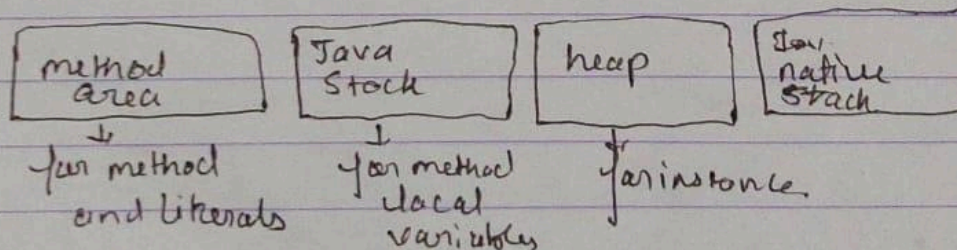 method
area
Java
Stack
heap
native
stack
for method
and literals
for method
local
variables
for instance.